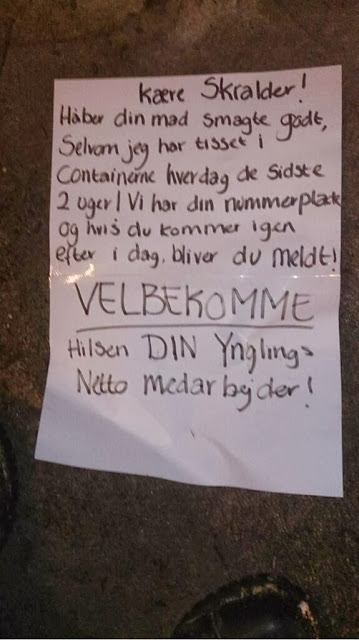 Kære Skralder!
Håber din mad smagte godt,
Selvom jeg har tisset i
Containerne hverdag de sidste
2 uger! Vi har din nummerplade
og hvis du kommer igen
efter i dag. bliver du meldt!
VELBEKOMME
Hilsen DIN Ynglings
Netto medarbejder!